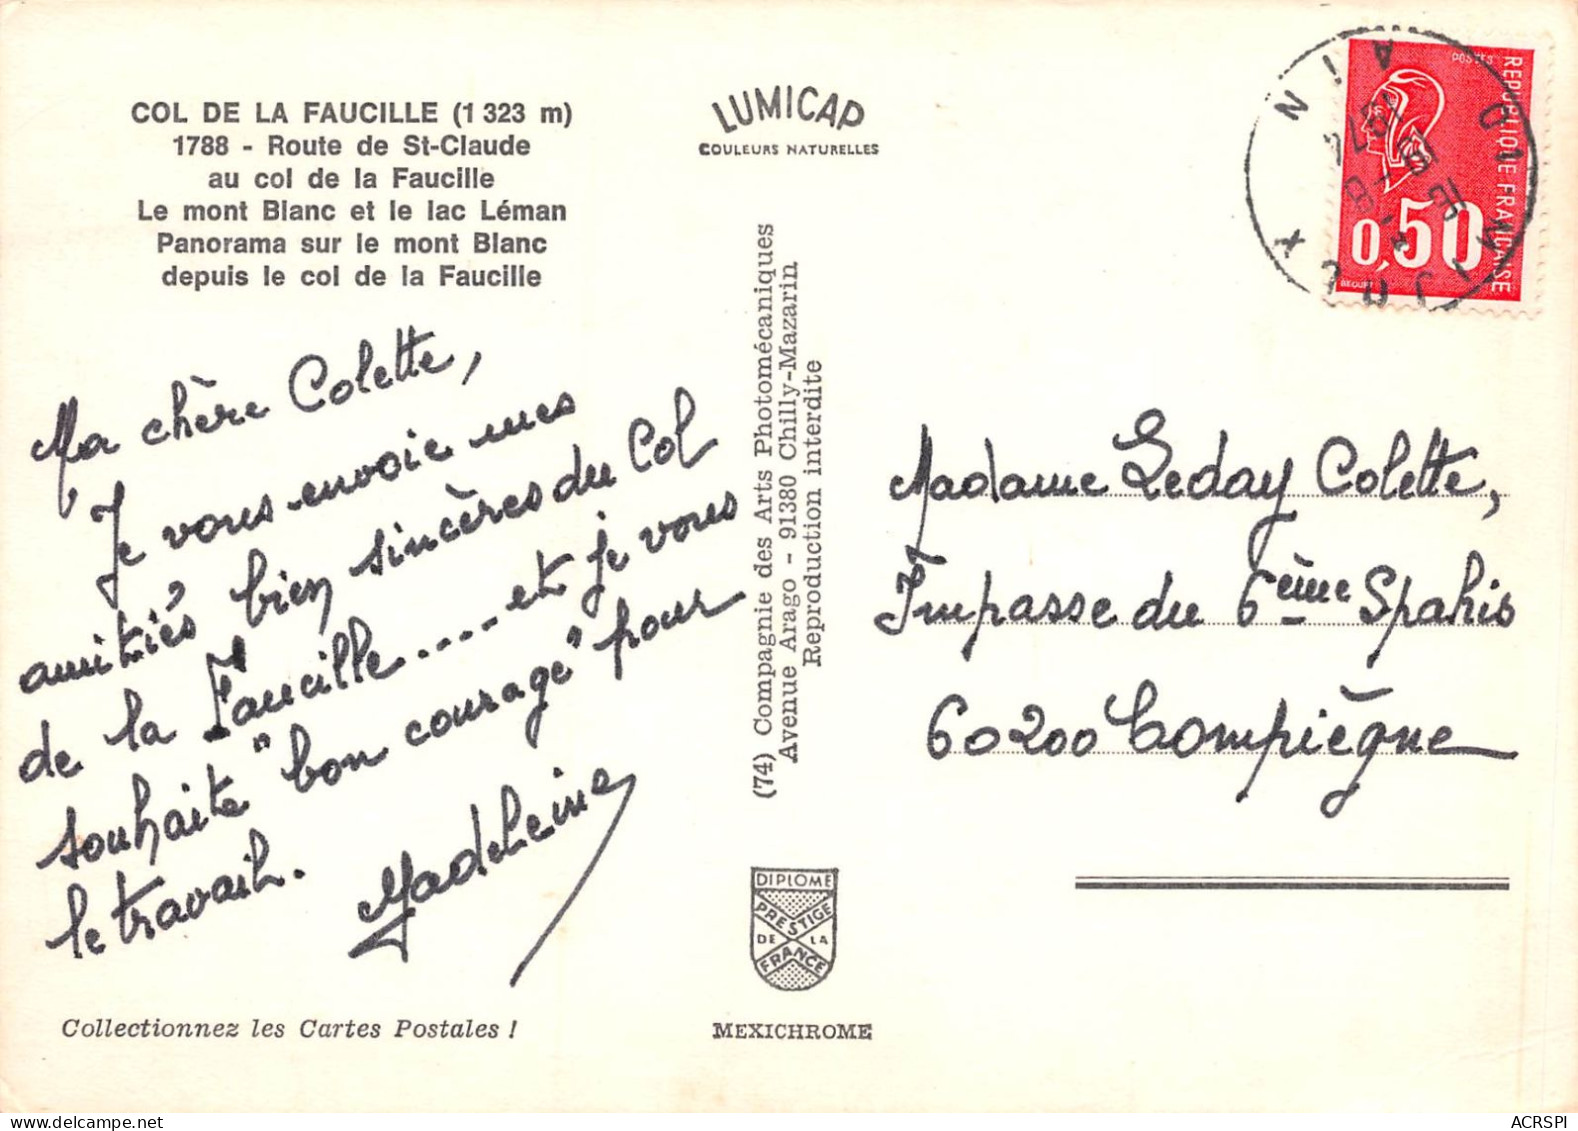 COL DE LA FAUCILLE (1 323 m)
1788 - Route de St-Claude
au col de la Faucille
Le mont Blanc et le lac Léman
Panorama sur le mont Blanc
depuis le col de la Faucille
Ma chère Colette,
Je vous envoie mes
amitiés bien sincères du Col
de la Faucille.... et je vous
souhaite "bon courage" pour
le travail.
Madeleine
Collectionnez les Cartes Postales !
LUMICAP
COULEURS NATURELLES
(74) Compagnie des Arts Photomécaniques
Avenue Arago - 91380 Chilly-Mazarin
Reproduction interdite
DIPLOME
PRESTIGE
DE LA
FRANCE
MEXICHROME
POSTES
REPUBLIQUE FRANCAISE
0,50
BEQUET
MIJOUX
AIN
1974
Madame Leday Colette,
Impasse du 6ème Spahis
60200 Compiègne
ACRSPI